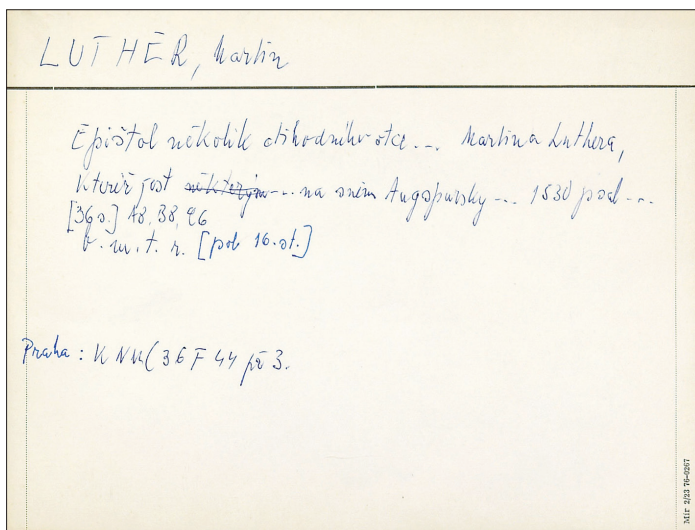 LUTHER, Martin
Epištol několik ctihodného otce ... Martina Luthera,
Kteréž jest některým ... na sněm Augspursky ... 1530 psal ...
[36 s.] A8, 38, 26
b. m. t. r. [pol. 16. st.]
Praha: KNM (36 F 44 př 3.
Mír 2/23 76-0267